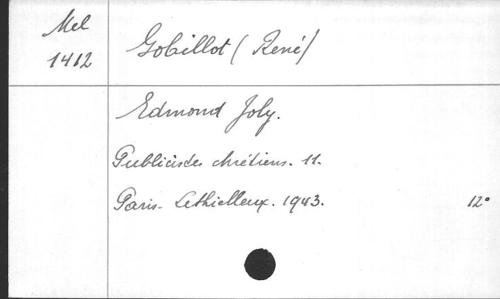 Mel
1412
Gobillot (René)
Edmond Joly.
Publicistes chrétiens. 11.
Paris. Lethielleux. 1943. 12°